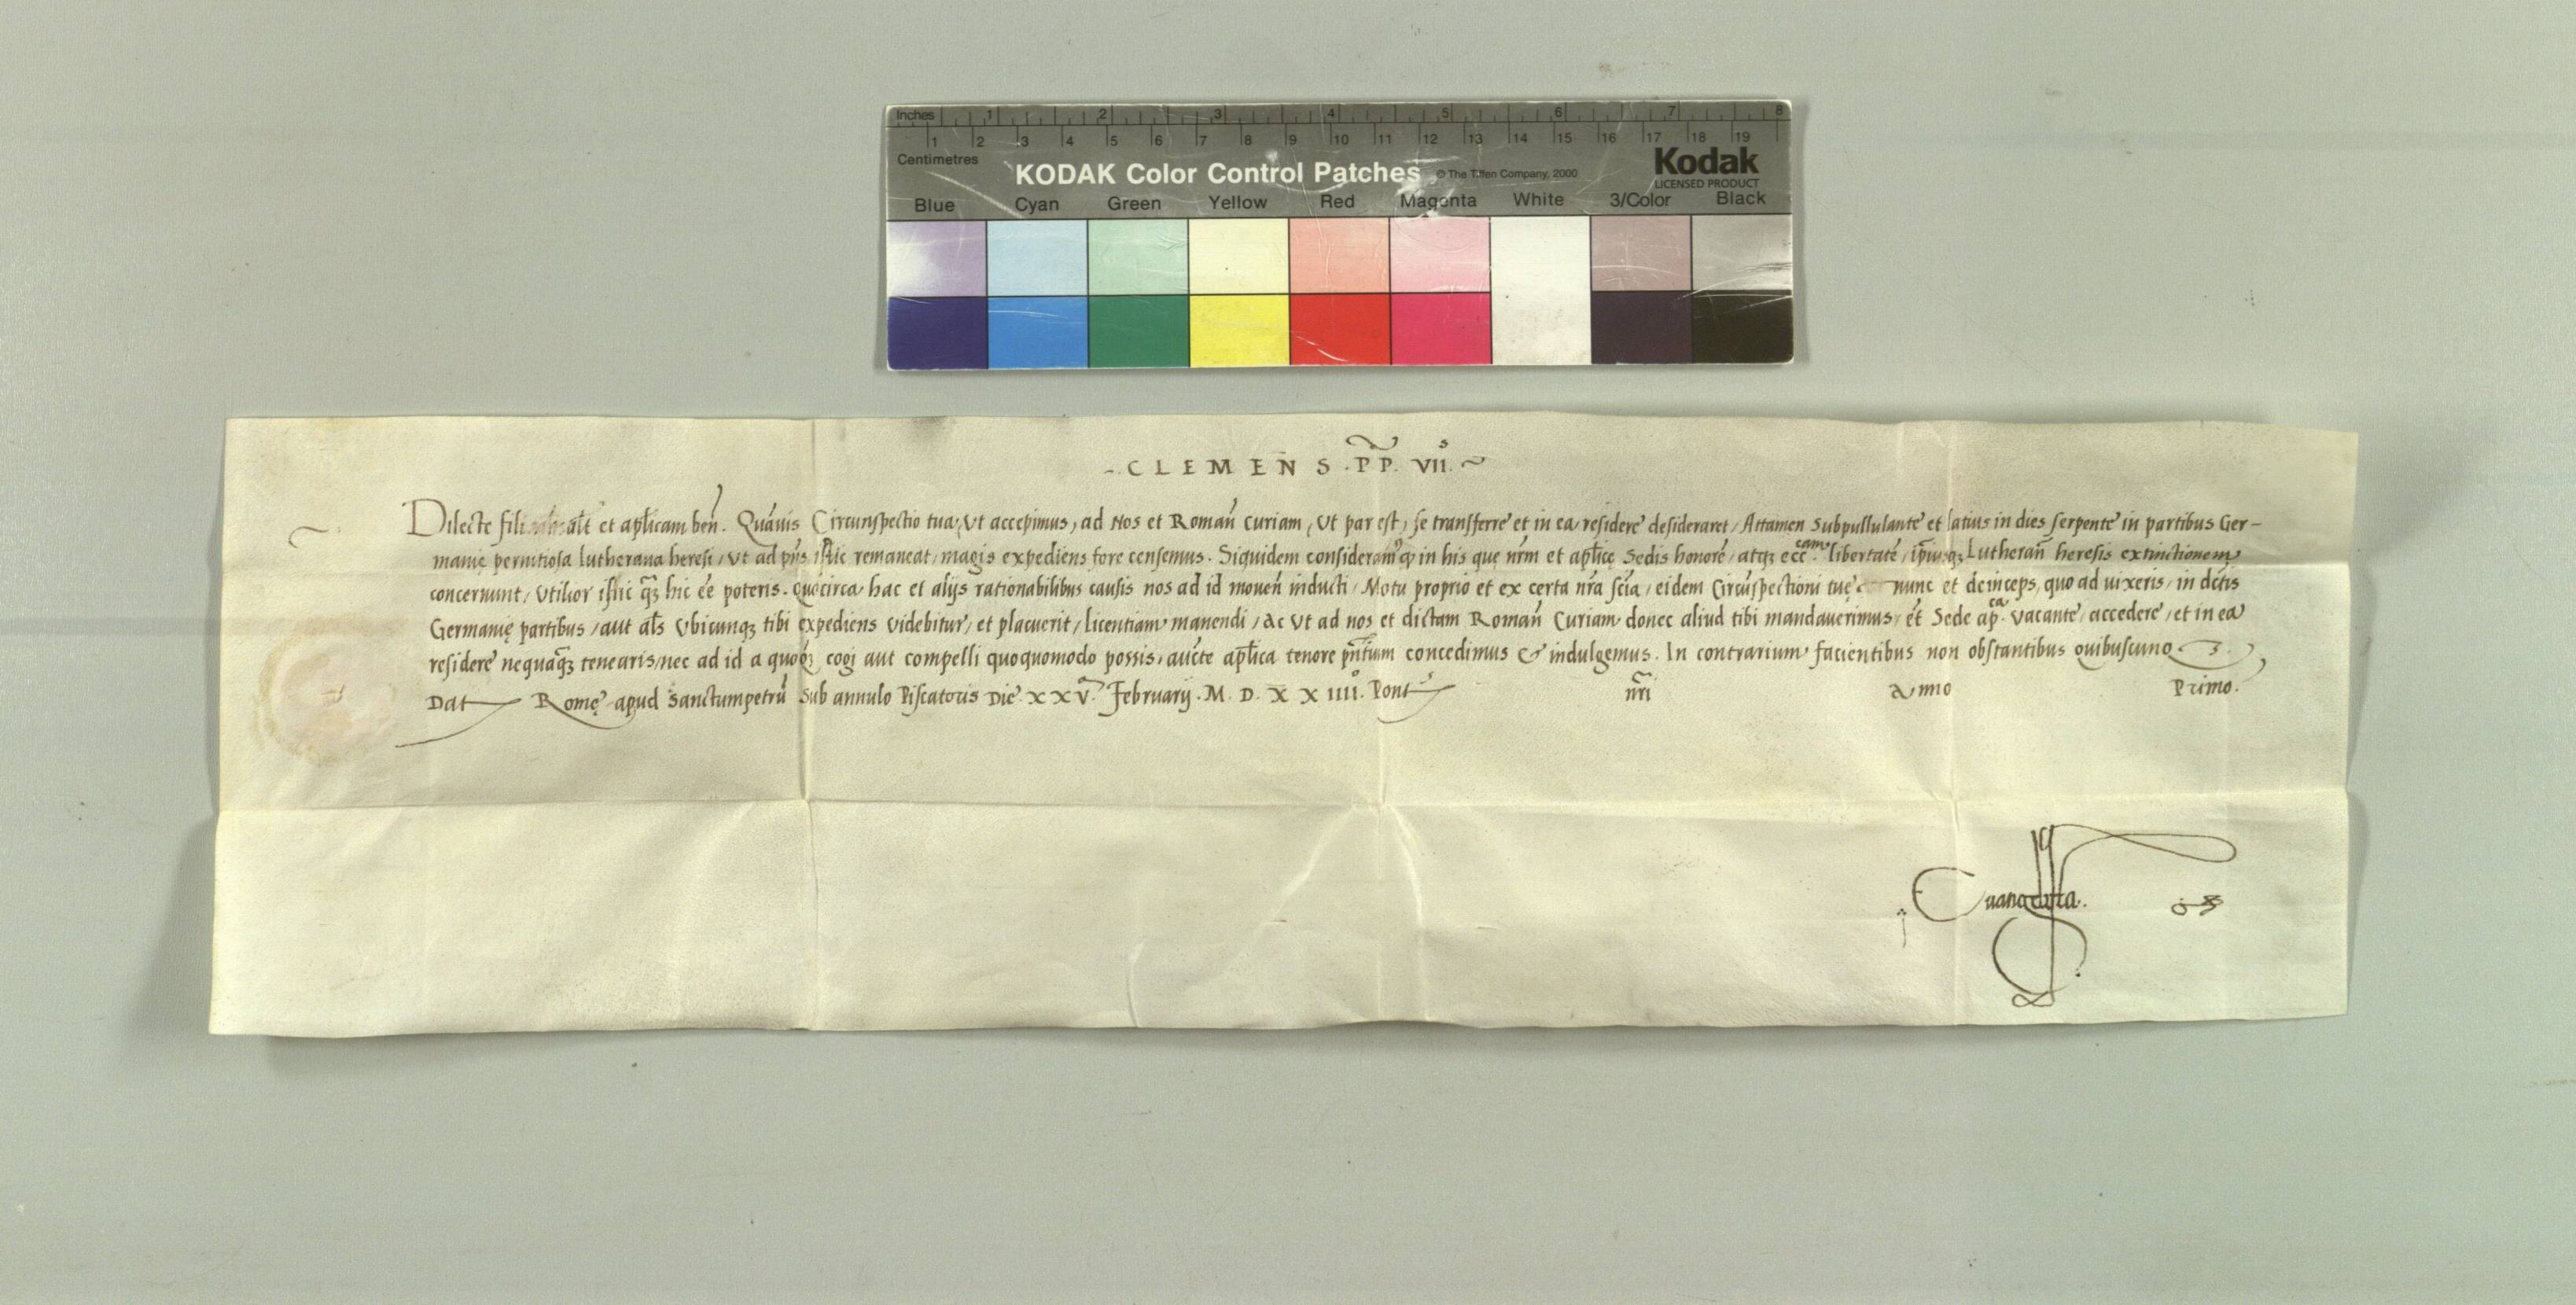 Inches 1 2 3 4 5 6 7 8
1 2 3 4 5 6 7 8 9 10 11 12 13 14 15 16 17 18 19
Centimetres
KODAK Color Control Patches © The Tiffen Company, 2000
Kodak
LICENSED PRODUCT
Blue Cyan Green Yellow Red Magenta White 3/Color Black
- CLEMENS · P̃P. VIIˢ. ~
Dilecte fili salt̃ et aplicam ben̄. Quãuis Circunspectio tua, vt accepimus, ad Nos et Romañ curiam, vt par est, se transferre et in ea residere desideraret, Attamen subpullulante et latius in dies serpente in partibus Ger-
manię pernitiosa lutherana heresi, vt ad pñs istic remaneat, magis expediens fore censemus. Siquidem consideram᷒ in his quę nr̃m et aplicę Sedis honorẽ, atqꝫ eccᶜᵃᵐ libertatẽ, Lutherañ heresis extinctionem
concernunt, vtilior istic q̃ꝫ hic eẽ poteris. Quocirca hac et alijs rationabilibus causis nos ad id mouen̄ inducti, Motu proprio et ex certa nr̃a sciã, eidem Circũspectioni tuę nunc et deinceps, quo ad uixeris, in dctis
Germanię partibus, aut al̃s vbicunqꝫ tibi expediens videbitur, et placuerit, licentiam manendi, ac vt ad nos et dictam Romañ Curiam donec aliud tibi mandauerimus, et̃ Sede apᶜᵃ. vacante, accedere, et in ea
residere nequaq̃ꝫ tenearis, nec ad id a quoqꝫ cogi aut compelli quoquomodo possis, aucte aplica tenore pñtium concedimus & indulgemus. In contrarium facientibus non obstantibus quibuscunqꝫ.
Dat Romę apud Sanctumpetrũ sub annulo Piscatoris Die XXV. February. M. D. XXIIII. Pontˢ nr̃i Anno Primo.
Euangelista.